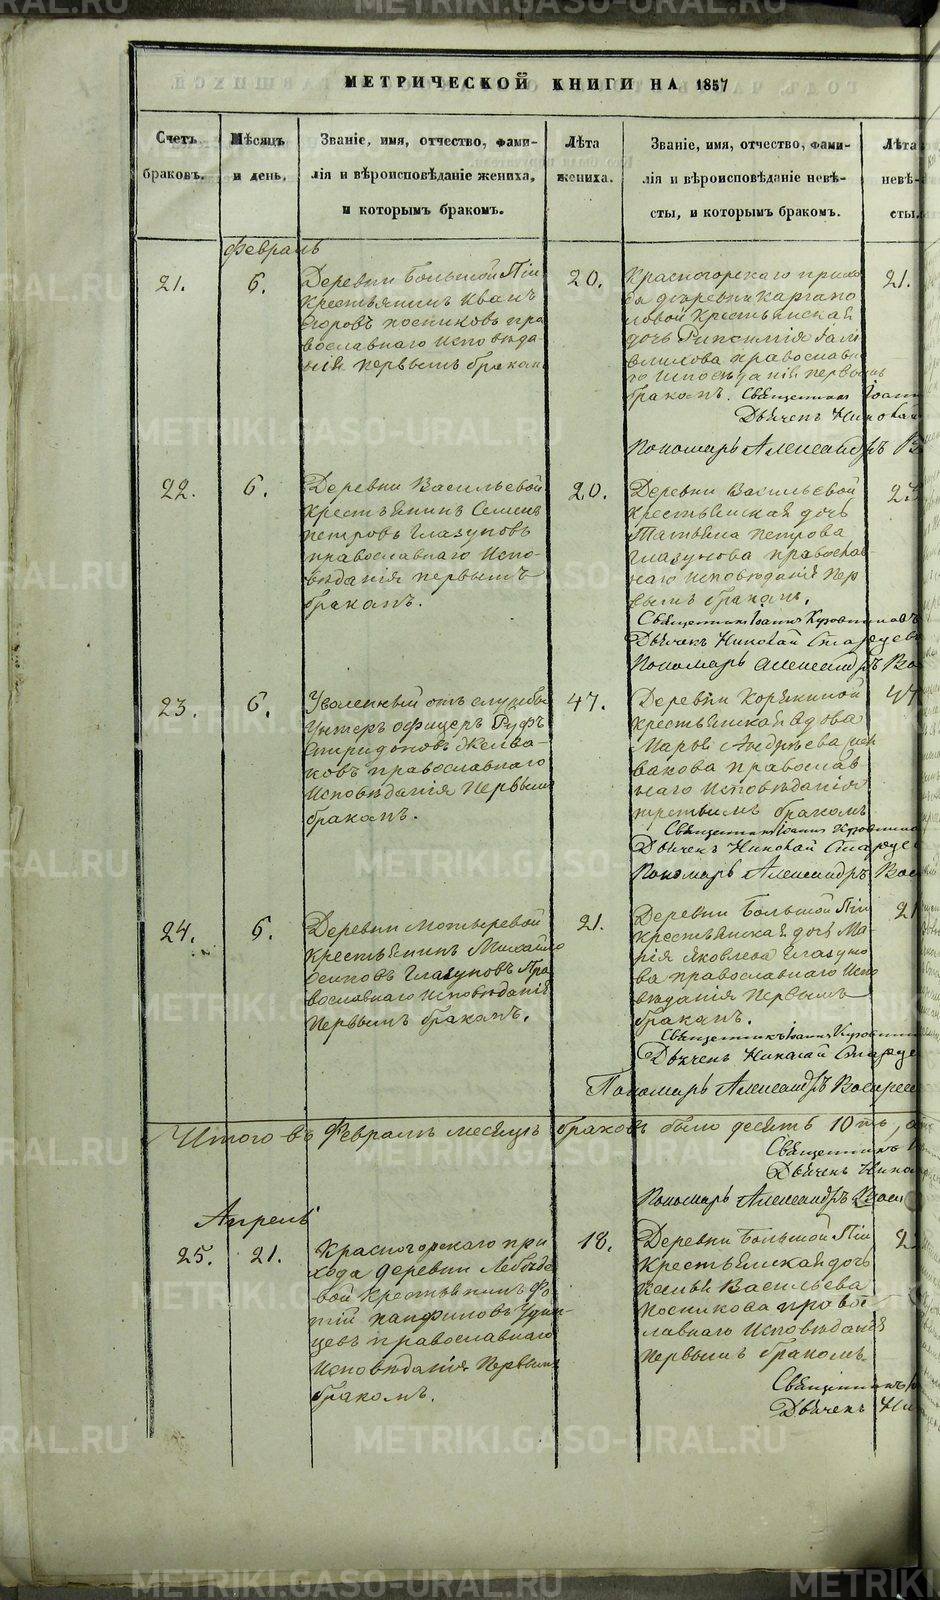 МЕТРИЧЕСКОЙ КНИГИ НА 1857
Счетъ
браковъ.
Мѣсяцъ
и день.
Званіе, имя, отчество, фами-
лія и вѣроисповѣданіе жениха,
и которымъ бракомъ.
Лѣта
жениха.
Званіе, имя, отчество, фами-
лія и вѣроисповѣданіе невѣ-
сты, и которымъ бракомъ.
Лѣта
невѣ-
сты.
Февраль
21.
6.
Деревни Большой Піи
Крестьянинъ Иванъ
Егоровъ Посниковъ пра
вославнаго исповѣда
нія первымъ бракам
20.
Красногорскаго прихо
да деревни Каргапо
ловой Крестьянская
дочь
православна
го исповѣданія первымъ
бракамъ. Священникъ Іоанн
Дьячекъ Николай
Пономарь Александръ В
21.
22.
6.
Деревни Васильевой
Крестьянинъ Семенъ
Петровъ Глазуновъ
православнаго испо-
вѣданія первымъ
бракамъ.
20.
Деревни Васильевой
Крестьянская дочь
Татьяна Петрова
Глазунова православ
наго исповѣданія пер
вымъ бракамъ.
Священникъ Іоаннъ
Дьячекъ Николай Старцев
Пономарь Александръ Вос
23
23.
6.
Уволенный отъ службы
Унтеръ офицеръ Руфъ
Спиридоновъ Желва-
ковъ православнаго
исповѣданія первымъ
бракамъ.
47.
Деревни Корякиной
крестьянская вдова
Марья Андреева
вакова православ
наго исповѣданія
третьимъ бракомъ
Священникъ Іоаннъ
Дьячекъ Николай Старцев
Пономарь Александръ Вос
47
24.
6.
Деревни Мотыревой
Крестьянинъ Михайло
Осиповъ Глазуновъ Пра
вославнаго исповѣданія
Первымъ бракамъ.
21.
Деревни Большой Піи
Крестьянская дочь Ма-
рія Яковлева Глазуно
ва православнаго испо
вѣданія Первымъ
бракамъ.
Священникъ Іоаннъ
Дьячекъ Николай Старце
Пономарь Александръ Воскресе
21
Итого въ Февралѣ месяцѣ браковъ было десять 10ть,
Священникъ
Дьячекъ Нико
Пономарь Александръ Воск
Апрель
25.
21.
Красногорскаго при
хода деревни Лебедё
вой крестьянинъ Фо
тій Панфиловъ Удин-
цевъ православнаго
исповѣданія Первымъ
бракомъ.
18.
Деревни Большой Піи
Крестьянская дочь
Васильева
Посникова право
славнаго исповѣданія
первымъ бракомъ
Священникъ
Дьячекъ Ни
2
METRIKI.GASO-URAL.RU